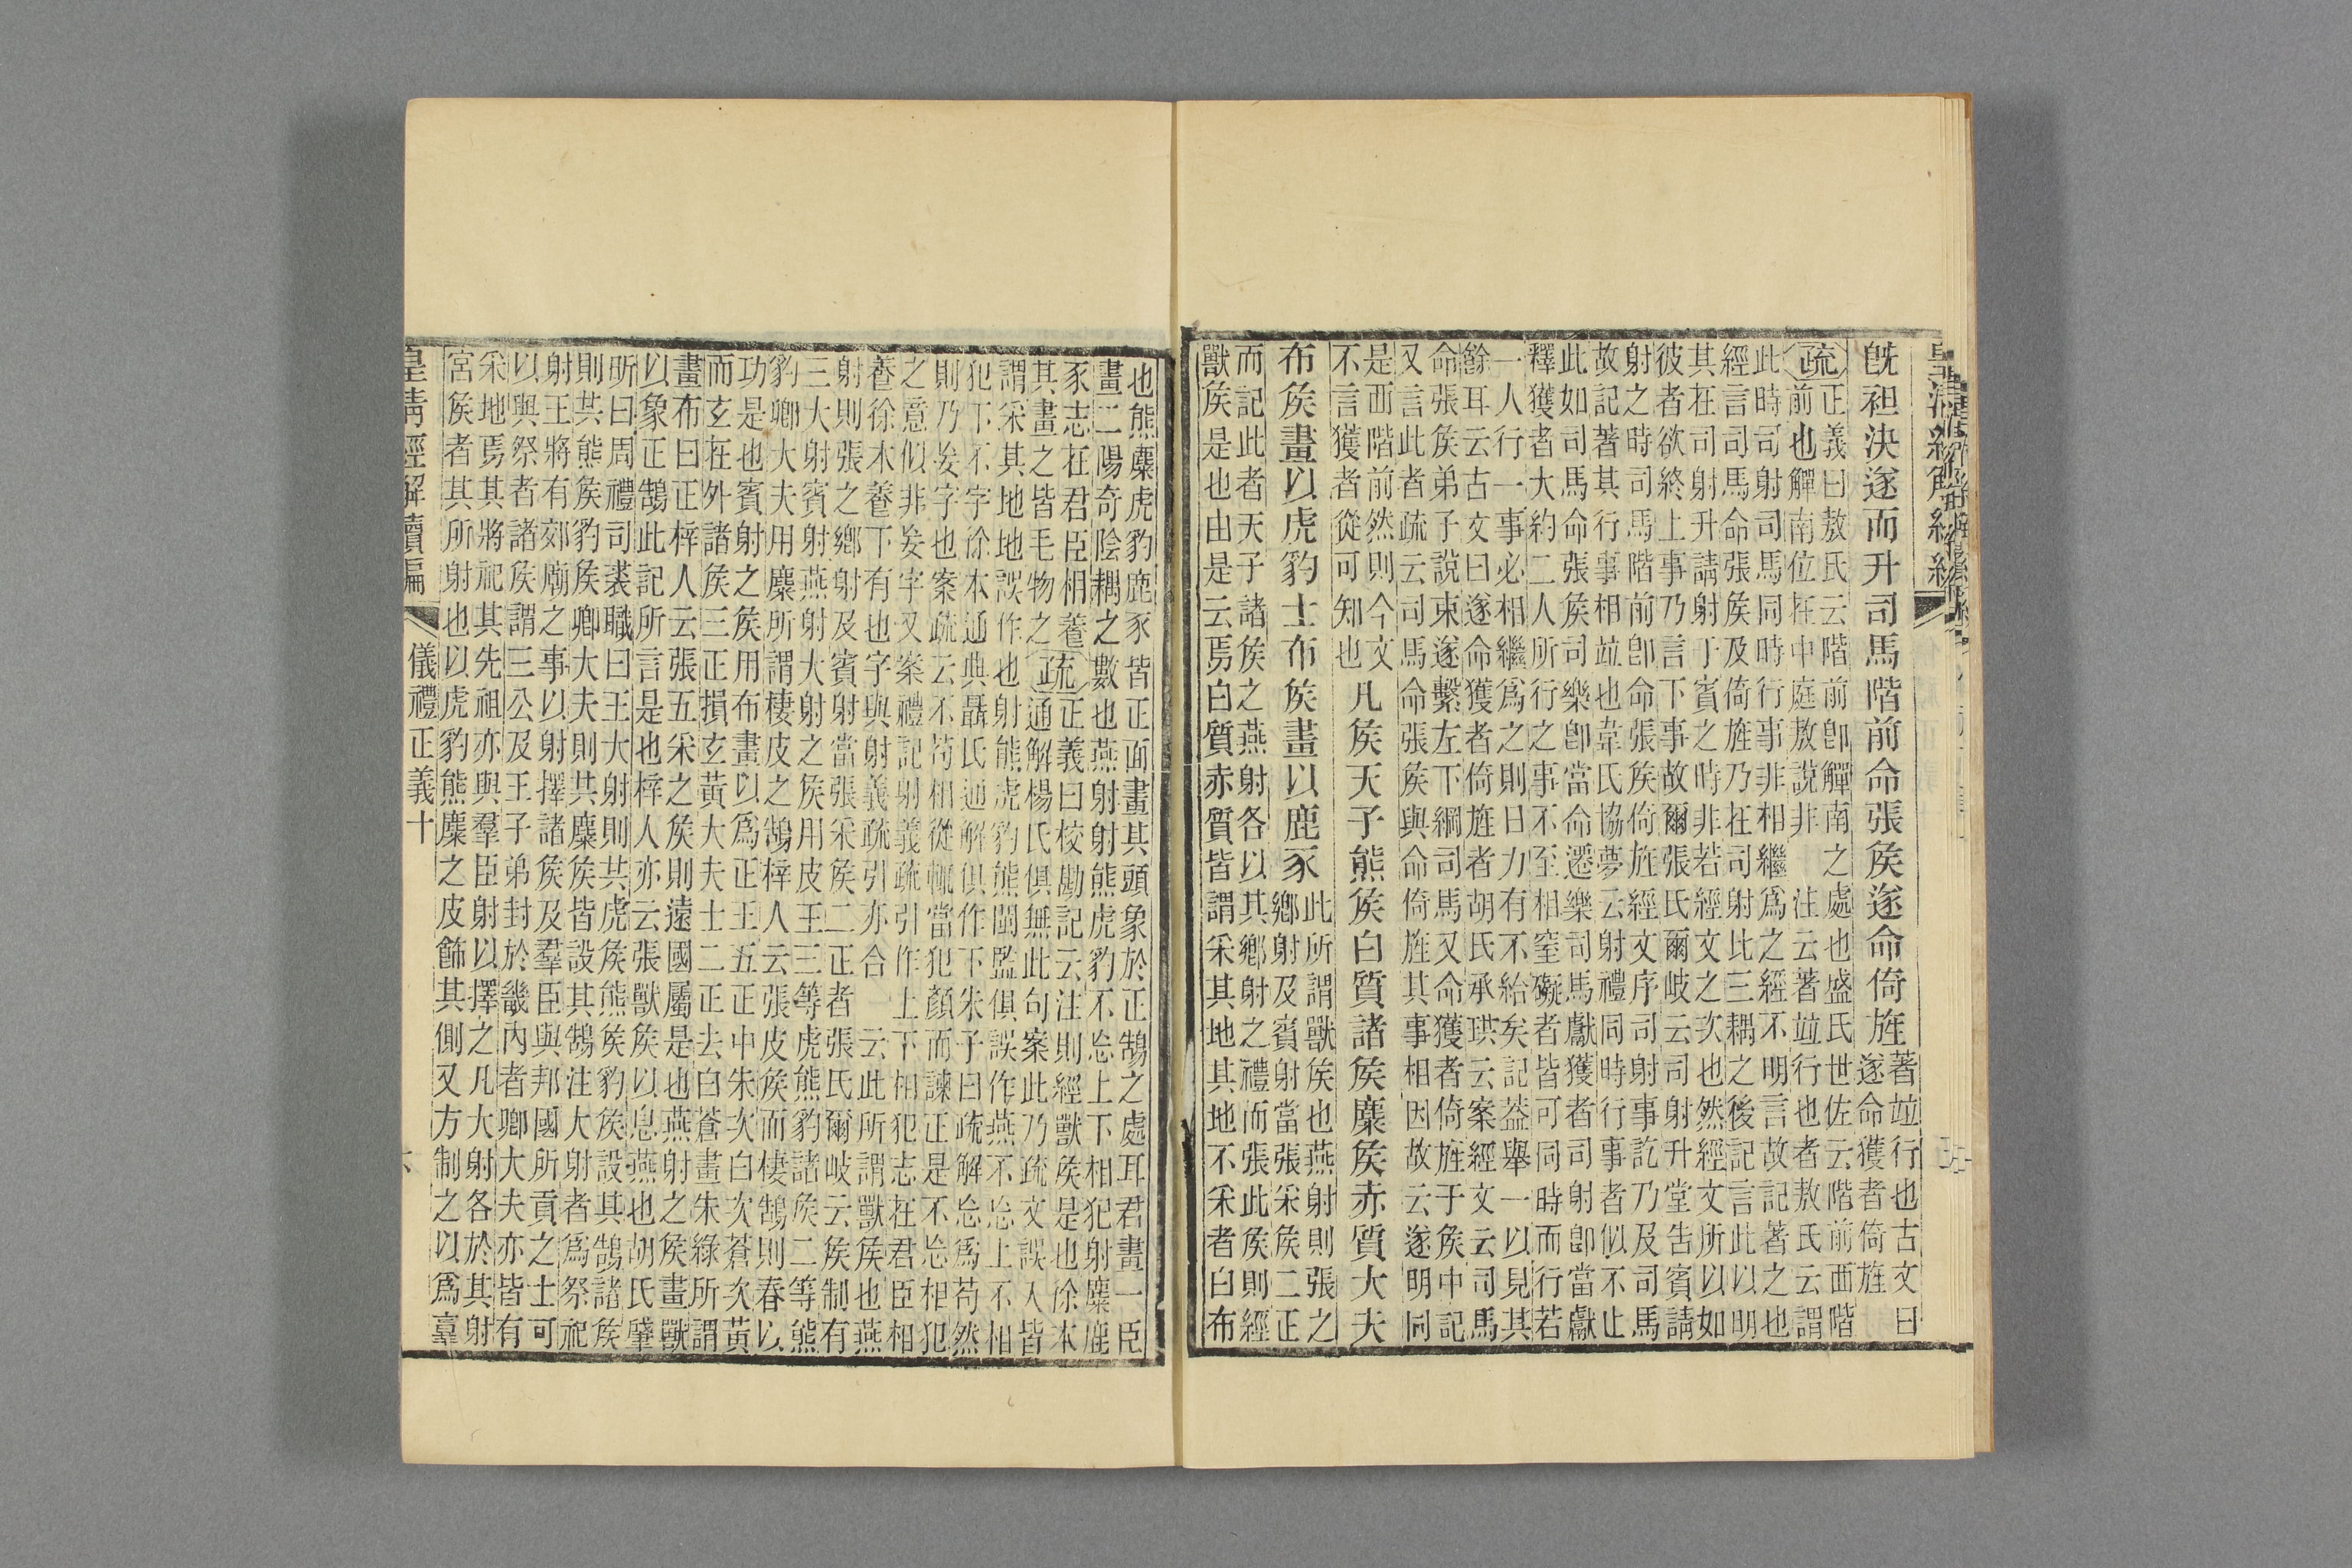 既袒決遂而升司馬階前命張侯遂命倚旌
著竝行也古文曰
遂命獲者倚旌
疏正義曰敖氏云階前卽觶南之處也盛氏世佐云階前西階
前也觶南位在中庭敖說非 注云著竝行也者敖氏云謂
此時司射司馬同時行事非相繼爲之經不明言故記著之也
經言司馬命張侯及倚旌乃在司射比三耦之後記言此以明
其在司射升請射于賓之時非若經文之次也然經文所以如
彼者欲終上事乃言下事故爾張氏爾岐云司射升堂告賓請
射之時司馬階前卽命張侯倚旌經文序司射事訖乃及司馬
故記著其行事相竝也韋氏協夢云射禮同時行事者似不止
此如司馬命張侯司樂卽當命遷樂司馬獻獲者司射卽當獻
釋獲者大約二人所行之事不至相窒礙者皆可同時而行若
一人行一事必相繼爲之則日力有不給矣記蓋舉一以見其
餘耳云古文曰遂命獲者倚旌者胡氏承珙云案經文云司馬
命張侯弟子說束遂繫左下綱司馬又命獲者倚旌于侯中記
又言此者疏云司馬命張侯與命倚旌其事相因故云遂明同
是西階前然則今文
不言獲者從可知也
凡侯天子熊侯白質諸侯麋侯赤質大夫
布侯畫以虎豹士布侯畫以鹿豕
此所謂獸侯也燕射則張之
鄉射及賓射當張采侯二正
而記此者天子諸侯之燕射各以其鄉射之禮而張此侯則經
獸侯是也由是云焉白質赤質皆謂采其地其地不采者白布
也熊麋虎豹鹿豕皆正面畫其頭象於正鵠之處耳君畫一臣
畫二陽奇陰耦之數也燕射射熊虎豹不忘上下相犯射麋鹿
豕志在君臣相養疏正義曰校勘記云注則經獸侯是也徐本
其畫之皆毛物之 通解楊氏俱無此句案此乃疏文誤入皆
謂采其地地誤作也射熊虎豹熊閩監俱誤作燕不忘上不相
犯下不字徐本通典聶氏通解俱作下朱子曰疏解忘爲苟然
則乃妄字也案疏云不苟相從輒當犯顏而諫正是不忘相犯
之意似非妄字又案禮記射義疏引作上下相犯志在君臣相
養徐本養下有也字與射義疏引亦合 云此所謂獸侯也燕
射則張之鄉射及賓射當張采侯二正者張氏爾岐云侯制有
三大射賓射燕射大射之侯用皮王三等虎熊豹諸侯二等熊
豹卿大夫用麋所謂棲皮之鵠梓人云張皮侯而棲鵠則春以
功是也賓射之侯用布畫以爲正王五正中朱次白次蒼次黃
而玄在外諸侯三正損玄黃大夫士二正去白蒼畫朱綠所謂
畫布曰正梓人云張五采之侯則遠國屬是也燕射之侯畫獸
以象正鵠此記所言是也梓人亦云張獸侯以息燕也胡氏肇
昕曰周禮司裘職曰王大射則共虎侯熊侯豹侯設其鵠諸侯
則共熊侯豹侯卿大夫則共麋侯皆設其鵠注大射者爲祭祀
射王將有郊廟之事以射擇諸侯及羣臣與邦國所貢之士可
以與祭者諸侯謂三公及王子弟封於畿內者卿大夫亦皆有
采地焉其將祀其先祖亦與羣臣射以擇之凡大射各於其射
宮侯者其所射也以虎豹熊麋之皮飾其側又方制之以爲臺
皇清經解續編
儀禮正義十